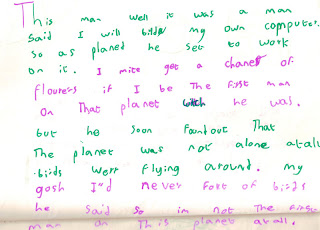 This man well it was a man
said I will bilde my own computer.
so as planed he set to work
on it. I mite get a chanst of
flouress if I be the first man
on that planet he was.
but he soon found out That
The planet was not alone atall
birds werr flying around. my
gosh I"d never fort of birds
he said so im not The first
man on This planet atall.